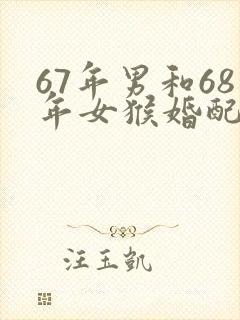 67年男和68
年女猴婚配
汪玉凯